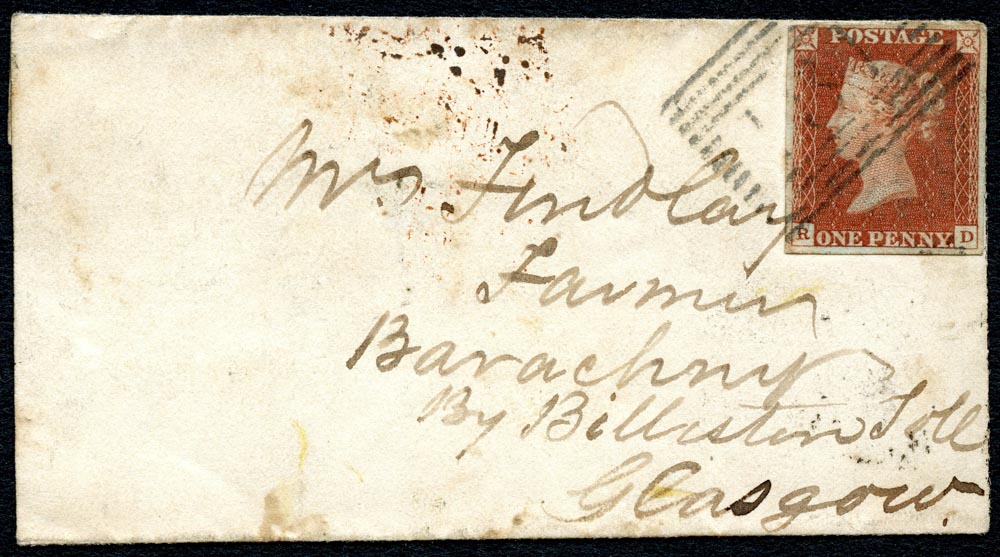 POSTAGE
R ONE PENNY. D
Mrs Findlay
Farmer
Barachny
By Billiston Toll
Glasgow